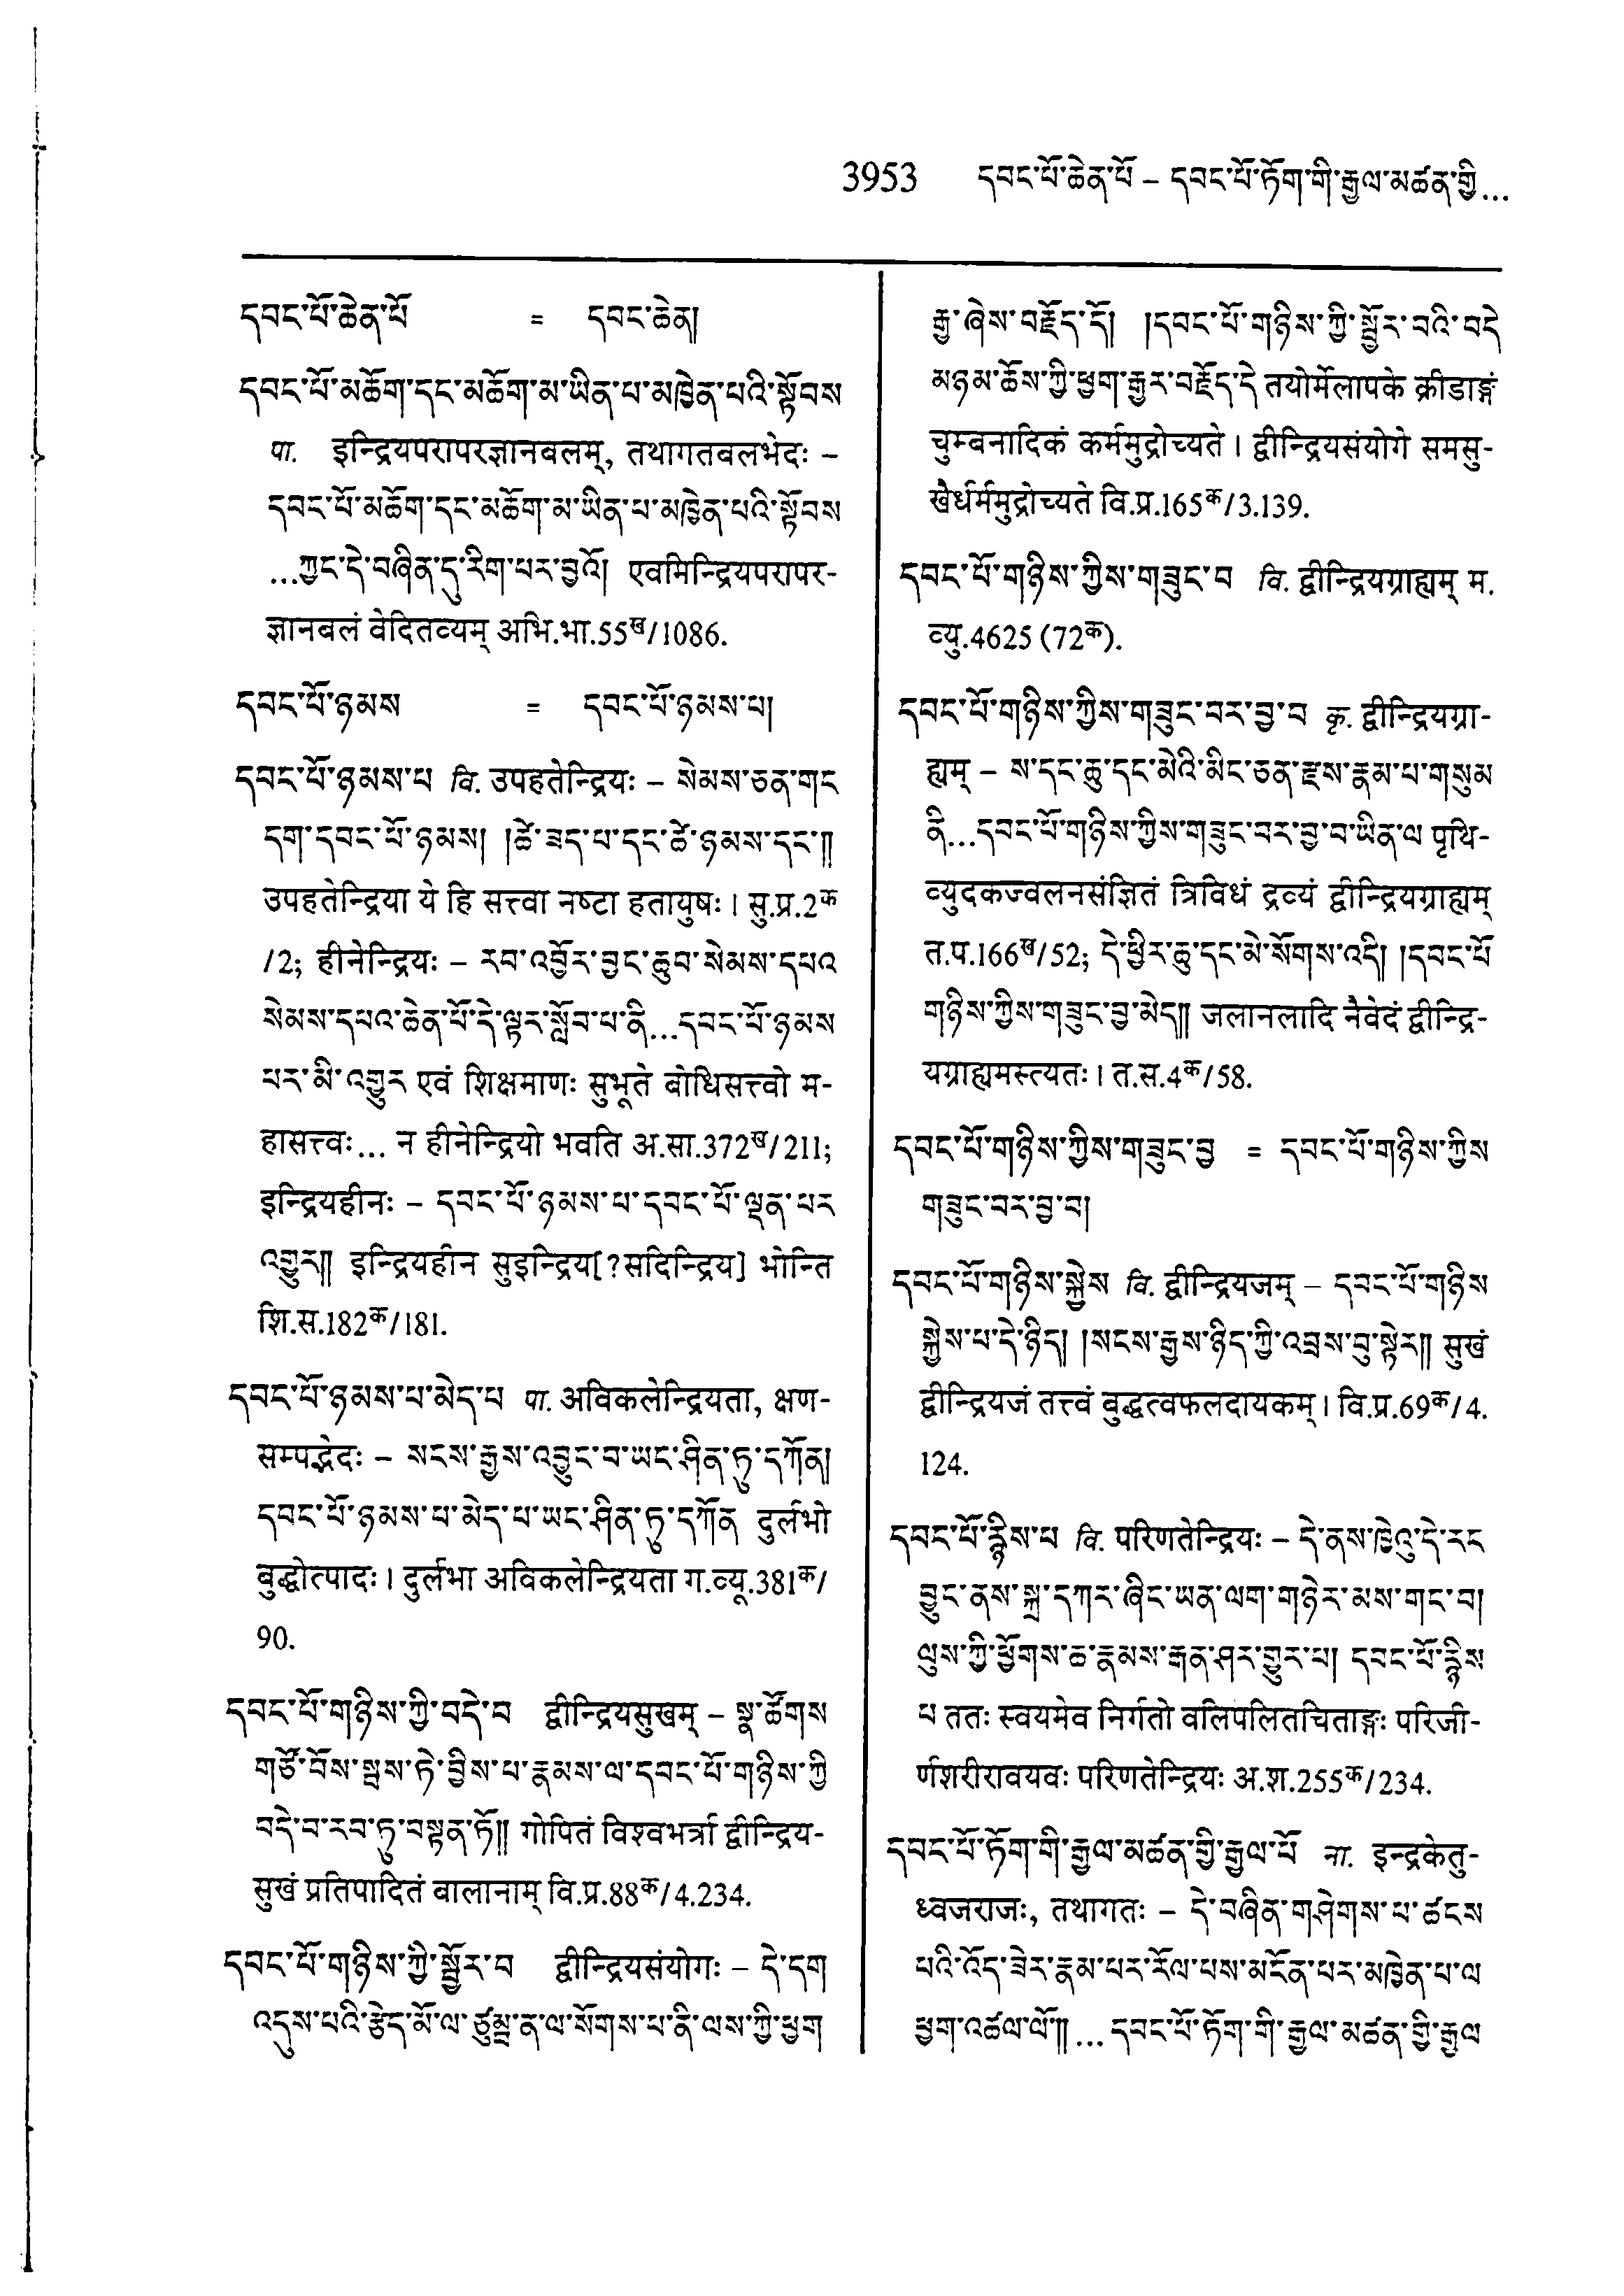 3953 དབང་པོ་ཆེན་པོ – དབང་པོ་ཏོག་གི་རྒྱལ་མཚན་གྱི...
དབང་པོ་ཆེན་པོ = དབང་ཆེན།
དབང་པོ་མཆོག་དང་མཆོག་མ་ཡིན་པ་མཁྱེན་པའི་སྟོབས
पा. इन्द्रियपरापरज्ञानबलम्, तथागतबलभेदः –
དབང་པོ་མཆོག་དང་མཆོག་མ་ཡིན་པ་མཁྱེན་པའི་སྟོབས
...ཀྱང་དེ་བཞིན་དུ་རིག་པར་བྱའོ། एवमिन्द्रियपरापर-
ज्ञानबलं वेदितव्यम् अभि.भा.55ख/1086.
དབང་པོ་ཉམས = དབང་པོ་ཉམས་པ།
དབང་པོ་ཉམས་པ वि. उपहतेन्द्रियः – སེམས་ཅན་གང
དག་དབང་པོ་ཉམས། །ཚེ་ཟད་པ་དང་ཚེ་ཉམས་དང་༎
उपहतेन्द्रिया ये हि सत्त्वा नष्टा हतायुषः । सु.प्र.2क
/2; हीनेन्द्रियः – རབ་འབྱོར་བྱང་ཆུབ་སེམས་དཔའ
སེམས་དཔའ་ཆེན་པོ་དེ་ལྟར་སློབ་པ་ནི...དབང་པོ་ཉམས
པར་མི་འགྱུར एवं शिक्षमाणः सुभूते बोधिसत्त्वो म-
हासत्त्वः... न हीनेन्द्रियो भवति अ.सा.372ख/211;
इन्द्रियहीनः – དབང་པོ་ཉམས་པ་དབང་པོ་ལྡན་པར
འགྱུར༎ इन्द्रियहीन सुइन्द्रिय[?सदिन्द्रिय] भोन्ति
शि.स.182क/181.
དབང་པོ་ཉམས་པ་མེད་པ पा. अविकलेन्द्रियता, क्षण-
सम्पद्भेदः – སངས་རྒྱས་འབྱུང་བ་ཡང་ཤིན་ཏུ་དཀོན།
དབང་པོ་ཉམས་པ་མེད་པ་ཡང་ཤིན་ཏུ་དཀོན दुर्लभो
बुद्धोत्पादः । दुर्लभा अविकलेन्द्रियता ग.व्यू.381क/
90.
དབང་པོ་གཉིས་ཀྱི་བདེ་བ द्वीन्द्रियसुखम् – སྣ་ཚོགས
གཙོ་བོས་སྦས་ཏེ་བྱིས་པ་རྣམས་ལ་དབང་པོ་གཉིས་ཀྱི
བདེ་བ་རབ་ཏུ་བསྟན་ཏོ༎ गोपितं विश्वभर्त्रा द्वीन्द्रिय-
सुखं प्रतिपादितं बालानाम् वि.प्र.88क/4.234.
དབང་པོ་གཉིས་ཀྱི་སྦྱོར་བ द्वीन्द्रियसंयोगः – དེ་དག
འདུས་པའི་རྩེད་མོ་ལ་ཙུམྦ་ན་ལ་སོགས་པ་ནི་ལས་ཀྱི་ཕྱག
རྒྱ་ཞེས་བརྗོད་དོ། །དབང་པོ་གཉིས་ཀྱི་སྦྱོར་བའི་བདེ
མཉམ་ཆོས་ཀྱི་ཕྱག་རྒྱར་བརྗོད་དེ तयोर्मेलापके क्रीडाङ्गं
चुम्बनादिकं कर्ममुद्रोच्यते । द्वीन्द्रियसंयोगे समसु-
खैर्धर्ममुद्रोच्यते वि.प्र.165क/3.139.
དབང་པོ་གཉིས་ཀྱིས་གཟུང་བ वि. द्वीन्द्रियग्राह्यम् म.
व्यु.4625 (72क).
དབང་པོ་གཉིས་ཀྱིས་གཟུང་བར་བྱ་བ कृ. द्वीन्द्रियग्रा-
ह्यम् – ས་དང་ཆུ་དང་མེའི་མིང་ཅན་རྫས་རྣམ་པ་གསུམ
ནི...དབང་པོ་གཉིས་ཀྱིས་གཟུང་བར་བྱ་བ་ཡིན་ལ पृथि-
व्युदकज्वलनसंज्ञितं त्रिविधं द्रव्यं द्वीन्द्रियग्राह्यम्
त.प.166ख/52; དེ་ཕྱིར་ཆུ་དང་མེ་སོགས་འདི། །དབང་པོ
གཉིས་ཀྱིས་གཟུང་བྱ་མེད༎ जलानलादि नैवेदं द्वीन्द्रि-
यग्राह्यमस्त्यतः । त.स.4क/58.
དབང་པོ་གཉིས་ཀྱིས་གཟུང་བྱ = དབང་པོ་གཉིས་ཀྱིས
གཟུང་བར་བྱ་བ།
དབང་པོ་གཉིས་སྐྱེས वि. द्वीन्द्रियजम् – དབང་པོ་གཉིས
སྐྱེས་པ་དེ་ཉིད། །སངས་རྒྱས་ཉིད་ཀྱི་འབྲས་བུ་སྟེར༎ सुखं
द्वीन्द्रियजं तत्त्वं बुद्धत्वफलदायकम् । वि.प्र.69क/4.
124.
དབང་པོ་རྙིས་པ वि. परिणतेन्द्रियः – དེ་ནས་ཁྱེའུ་དེ་རང
བྱུང་ནས་སྐྲ་དཀར་ཞིང་ཡན་ལག་གཉེར་མས་གང་བ།
ལུས་ཀྱི་ཕྱོགས་ཆ་རྣམས་རྒན་ཤར་གྱུར་པ། དབང་པོ་རྙིས
པ ततः स्वयमेव निर्गतो वलिपलितचिताङ्गः परिजी-
र्णशरीरावयवः परिणतेन्द्रियः अ.श.255क/234.
དབང་པོ་ཏོག་གི་རྒྱལ་མཚན་གྱི་རྒྱལ་པོ ना. इन्द्रकेतु-
ध्वजराजः, तथागतः – དེ་བཞིན་གཤེགས་པ་ཚངས
པའི་འོད་ཟེར་རྣམ་པར་རོལ་པས་མངོན་པར་མཁྱེན་པ་ལ
ཕྱག་འཚལ་ལོ༎ ... དབང་པོ་ཏོག་གི་རྒྱལ་མཚན་གྱི་རྒྱལ